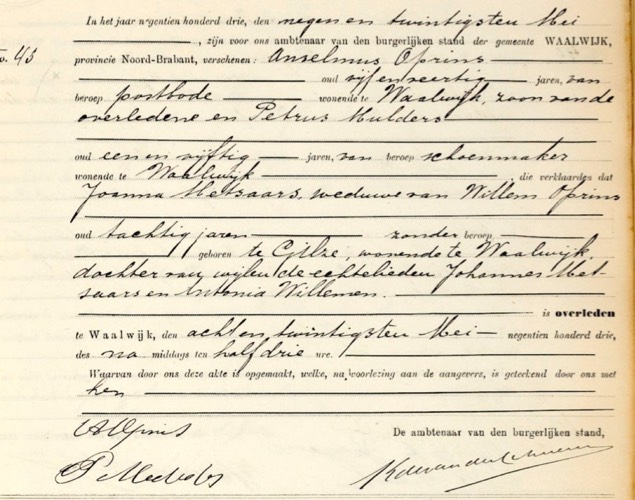 In het jaar negentien honderd drie, den negen en twintigsten Mei
, zijn voor ons ambtenaar van den burgerlijken stand der gemeente WAALWIJK,
o. 45
provincie Noord-Brabant, verschenen: Anselmus Oprins
oud vijf en veertig jaren, van
beroep postbode wonende te Waalwijk, zoon van de
overledene en Petrus Mulders
oud een en vijftig jaren, van beroep schoenmaker
wonende te Waalwijk, die verklaarden dat
Joanna Metsaars, weduwe van Willem Oprins
oud tachtig jaren zonder beroep
geboren te Gilze, wonende te Waalwijk,
dochter van wijlen de echtelieden Johannes Met-
saars en Antonia Willemen.
is overleden
te Waalwijk, den acht en twintigsten Mei negentien honderd drie,
des na middags ten half drie ure.
Waarvan door ons deze akte is opgemaakt, welke, na voorlezing aan de aangevers, is geteekend door ons met
hen
AOprins
De ambtenaar van den burgerlijken stand,
P Mulders